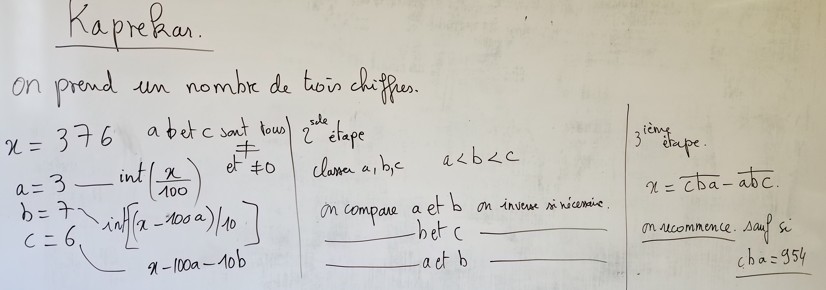 Kaprekar.
on prend un nombre de trois chiffres.
x = 376 a b et c sont tous ≠
et ≠0
a = 3 — int(x/100)
b = 7 int[(x - 100a)/10]
c = 6
x - 100a - 10b
2nde étape
classer a, b, c a < b < c
on compare a et b on inverse si nécessaire.
——— b et c ———
——— a et b ———
3ième étape.
x = c̅b̅a̅ - a̅b̅c̅.
on recommence. sauf si
cba = 954